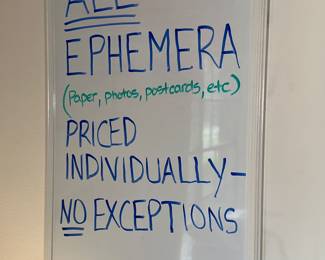 ALL
EPHEMERA
(Paper, photos, postcards, etc)
PRICED
INDIVIDUALLY-
NO EXCEPTIONS